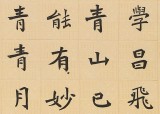 學昌飛
青山已
能有妙
青青月